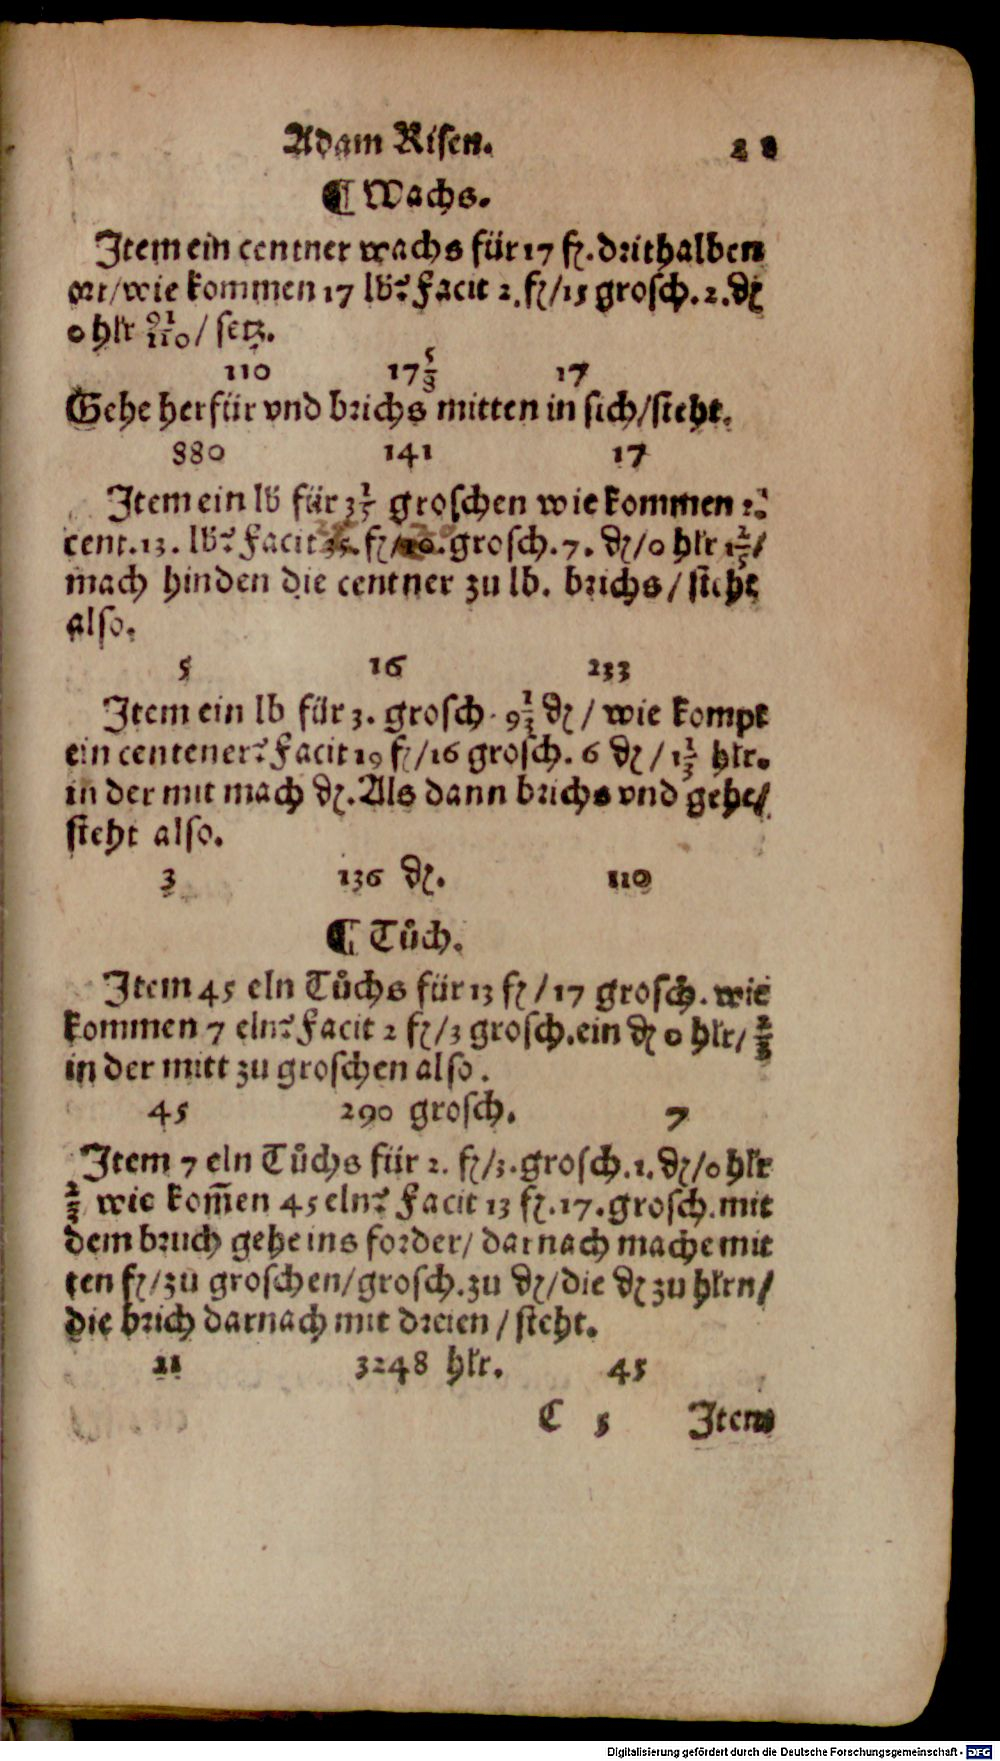 Adam Risen.
¶ Wachs.
Item ein centner wachs für 17 fl. drithalben
ort/wie kommen 17 lb? Facit 2. fl/15 grosch. 2. ₰
0 hlr 91/110 / setz.
110 17 5/8 17
Gehe herfür vnd brichs mitten in sich/steht.
880 141 17
Item ein lb für 3 1/5 groschen wie kommen 2.
cent. 13. lb? Facit 35. fl/10. grosch. 7. ₰/0 hlr 1 2/5/
mach hinden die centner zu lb. brichs/steht
also.
5 16 233
Item ein lb für 3. grosch. 9 1/3 ₰/ wie kompt
ein centener? Facit 19 fl/16 grosch. 6 ₰/ 1 1/3 hlr.
in der mit mach ₰. Als dann brichs vnd gehe/
steht also.
3 136 ₰. 110
¶ Tůch.
Item 45 eln Tůchs für 13 fl/17 grosch. wie
kommen 7 eln? Facit 2 fl/3 grosch. ein ₰ 0 hlr/ 2/3
in der mitt zu groschen also.
45 290 grosch. 7
Item 7 eln Tůchs für 2. fl/3. grosch. 1. ₰/0 hlr
2/3 wie kom̄en 45 eln? Facit 13 fl. 17. grosch. mit
dem bruch gehe ins forder/ darnach mache mit
ten fl/zu groschen/grosch. zu ₰/die ₰ zu hlrn/
die brich darnach mit dreien/steht.
21 3248 hlr. 45
C 5 Item
Digitalisierung gefördert durch die Deutsche Forschungsgemeinschaft - DFG